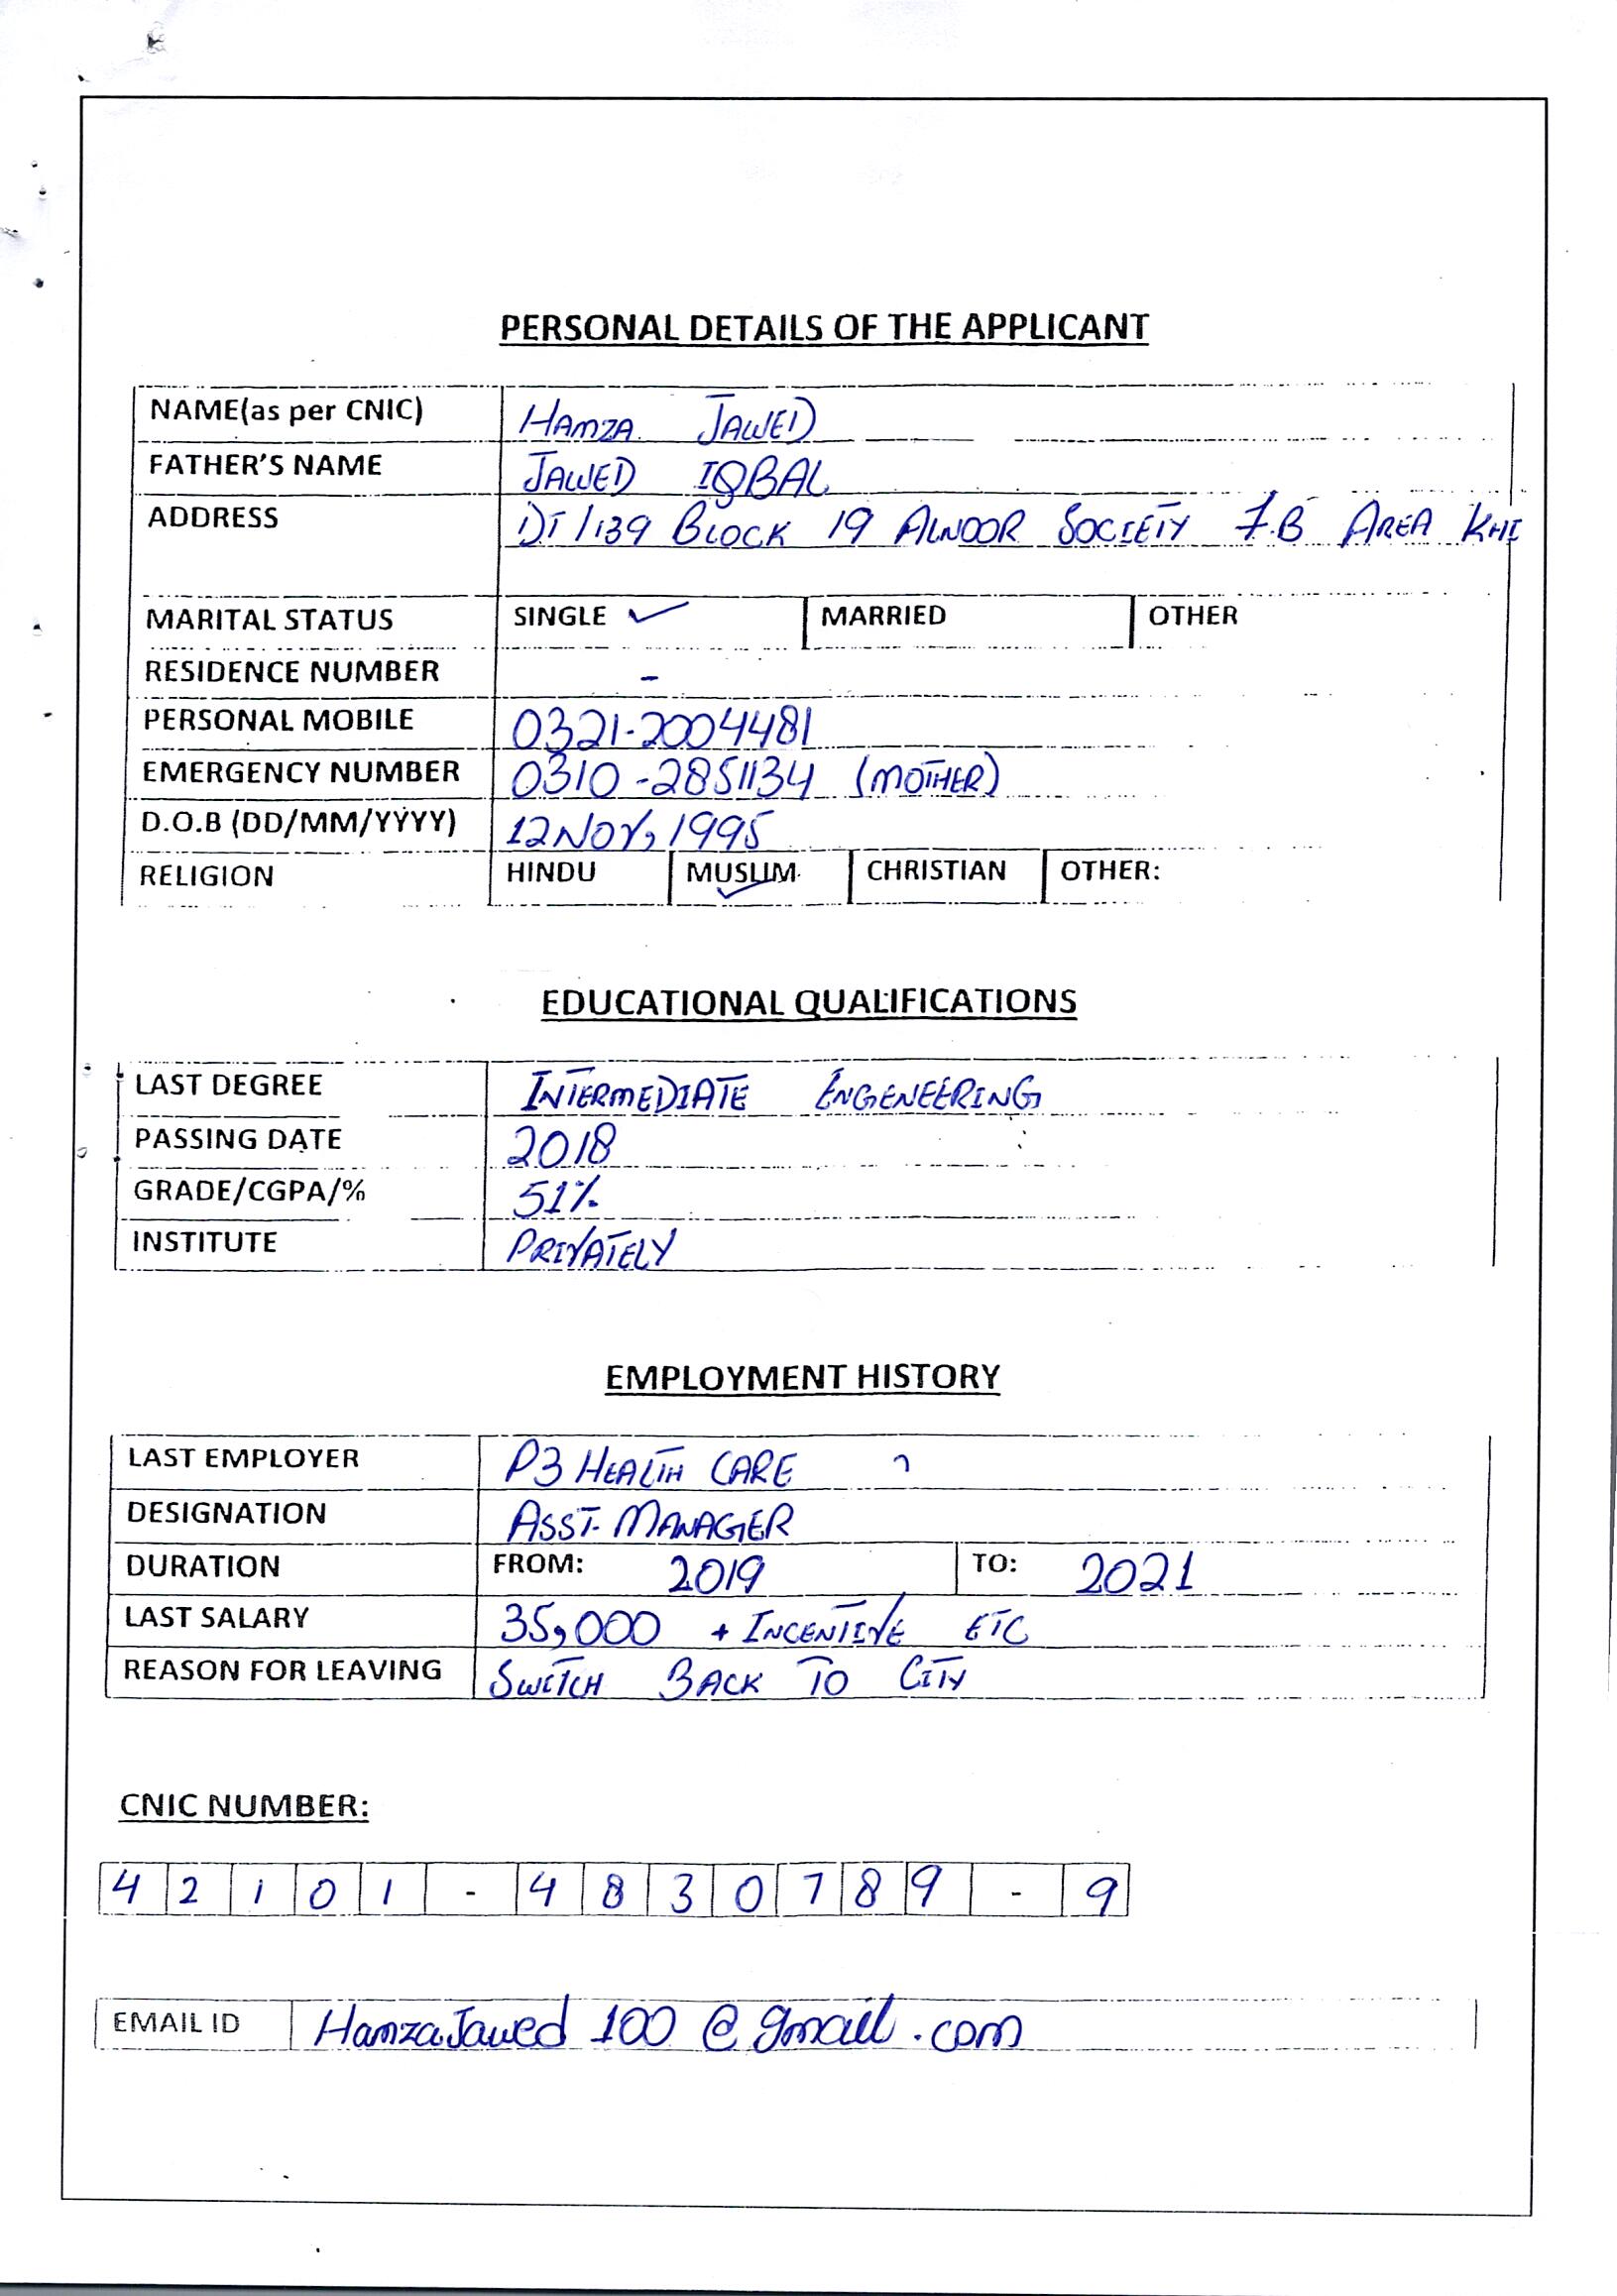 PERSONAL DETAILS OF THE APPLICANT
NAME(as per CNIC) HAMZA JAWED
FATHER'S NAME JAWED IQBAL
ADDRESS DT/139 BLOCK 19 ALNOOR SOCIETY F.B AREA KHI
MARITAL STATUS SINGLE ✓ MARRIED OTHER
RESIDENCE NUMBER -
PERSONAL MOBILE 0321-2004481
EMERGENCY NUMBER 0310-2851134 (MOTHER)
D.O.B (DD/MM/YYYY) 12 NOV, 1995
RELIGION HINDU MUSLIM ✓ CHRISTIAN OTHER:
EDUCATIONAL QUALIFICATIONS
LAST DEGREE INTERMEDIATE ENGENEERING
PASSING DATE 2018
GRADE/CGPA/% 51%
INSTITUTE PRIVATELY
EMPLOYMENT HISTORY
LAST EMPLOYER P3 HEALTH CARE
DESIGNATION ASST. MANAGER
DURATION FROM: 2019 TO: 2021
LAST SALARY 35,000 + INCENTIVE ETC
REASON FOR LEAVING SWITCH BACK TO CITY
CNIC NUMBER:
42101-4830789-9
EMAIL ID HamzaJawed100@gmail.com